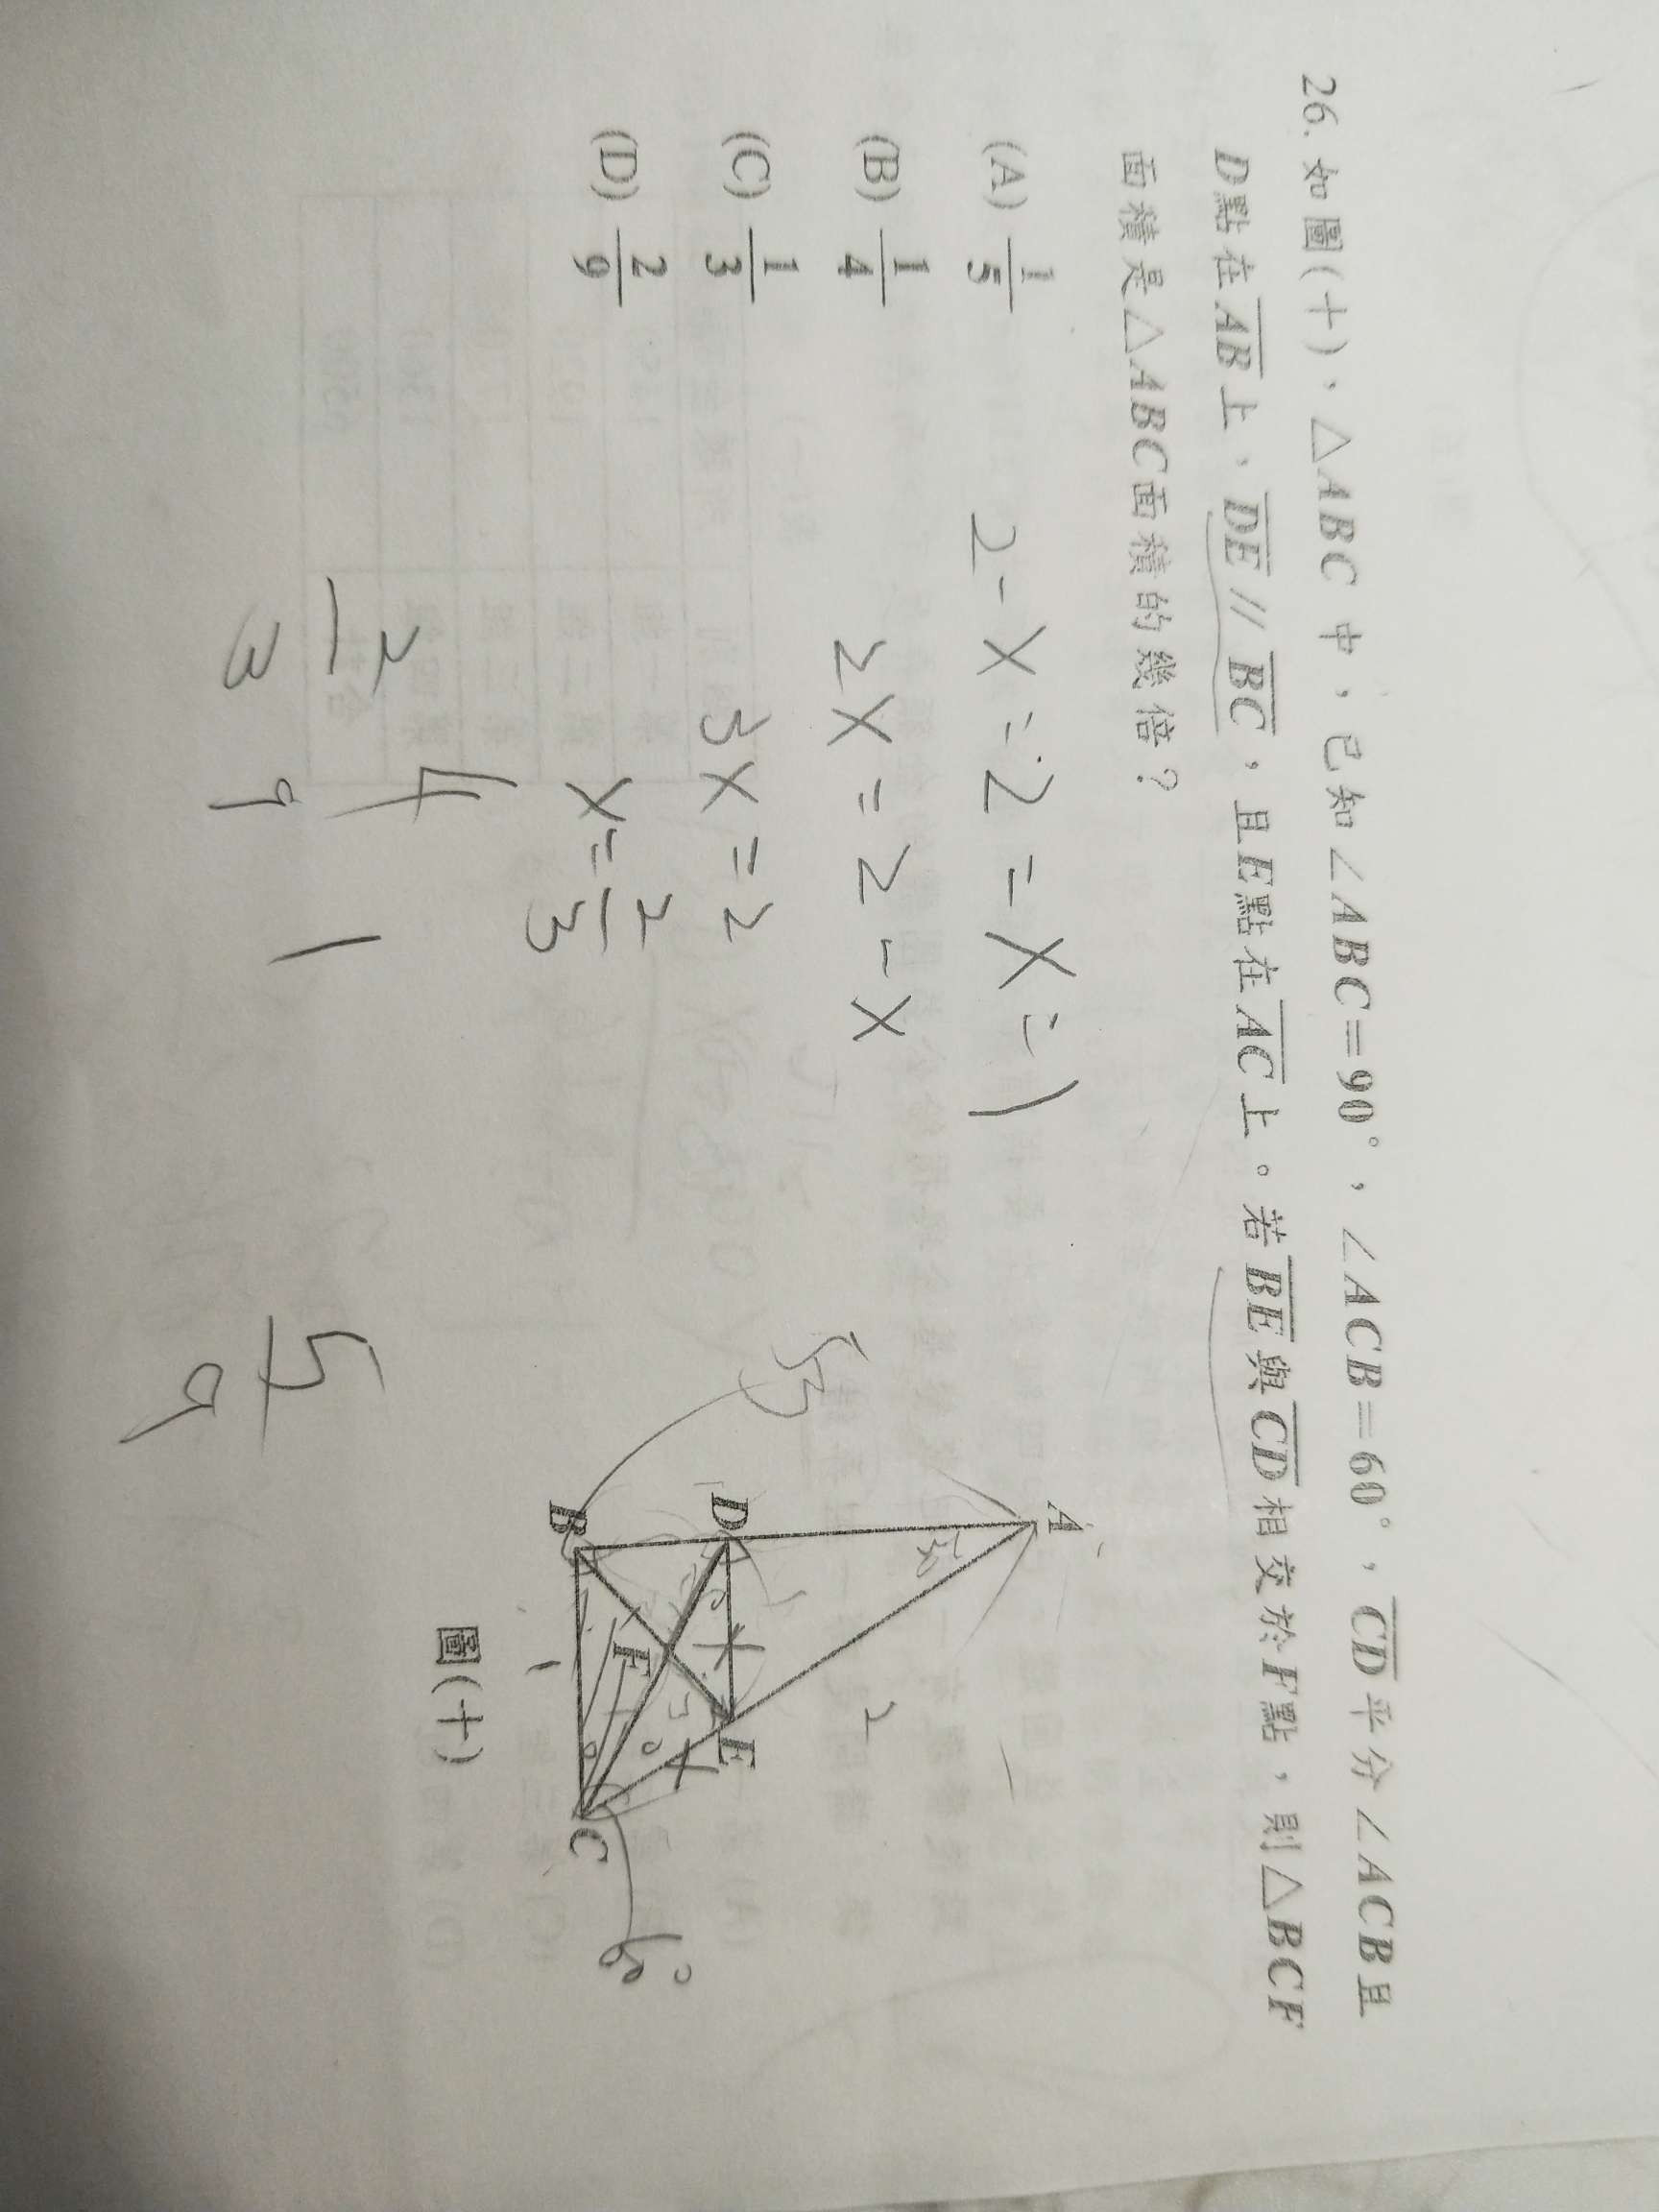 26. 如圖(十),△ABC 中,已知∠ABC=90°,∠ACB=60°,CD平分∠ACB且
D點在AB上,DE//BC,且E點在AC上。若BE與CD相交於F點,則△BCF
面積是△ABC面積的幾倍?
(A) 1/5
(B) 1/4
(C) 1/3
(D) 2/9
2-x:2=x:1
2x=2-x
3x=2
x=2/3
2/3
4
9
1
5/9
A
B
C
D
E
F
x
x
2
1
60°
圖(十)